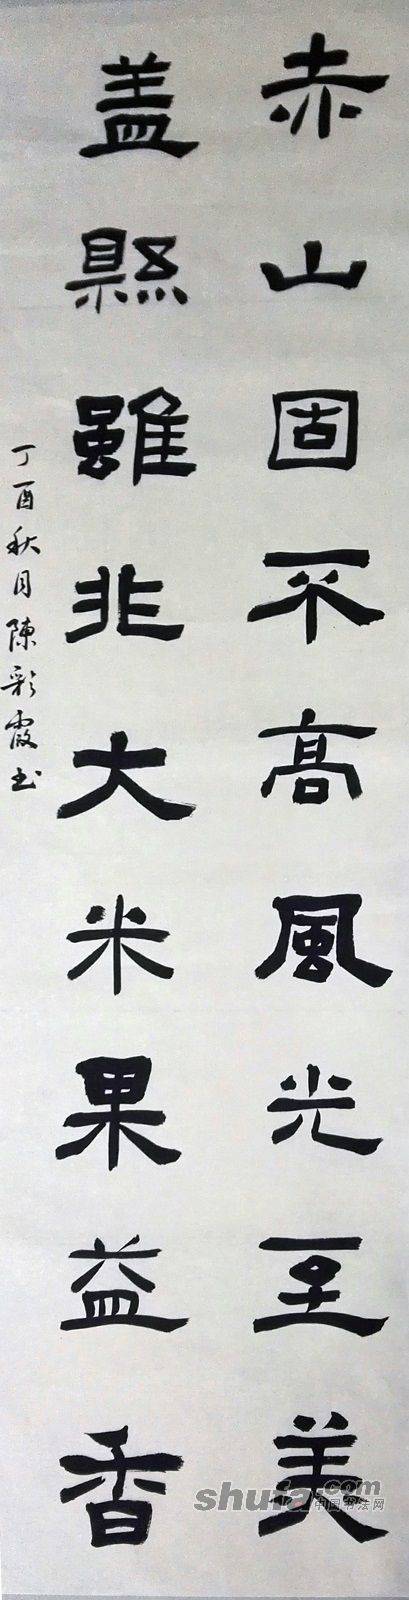 赤山固不高風光至美
盖縣雖非大米果益香
丁酉秋月陳彩霞书
shufa.com
中国书法网